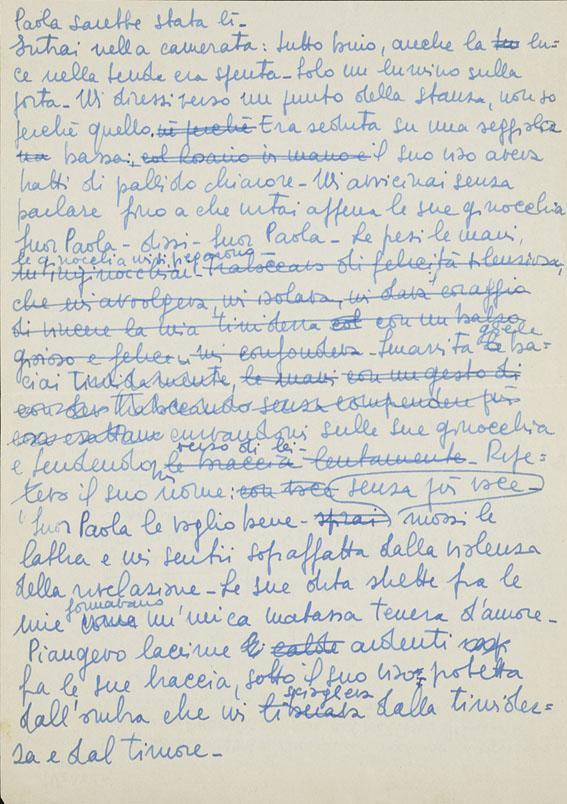 Paola sarebbe stata lì-
Entrai nella camerata: tutto buio, anche la lu=
ce nella tenda era spenta- Solo un lumino sulla
porta- Mi diressi verso un punto della stanza, non so
perchè quello. nè perchè Era seduta su una seggiola
bassa; col Rosario in mano e il suo viso aveva
tratti di pallido chiarore- Mi avvicinai senza
parlare fino a che urtai appena le sue ginocchia
Suor Paola- dissi- Suor Paola- Le presi le mani,
le ginocchia mi si piegarono-
m'inginocchiai- traboccavo di felicità silenziosa,
che mi avvolgeva, mi isolava, mi dava coraggio
di vincere la mia timidezza col con un balzo
gioioso e felice. mi confondeva- Smarrita
baciai timidamente, le mani con un gesto di
traboccando senza comprendere più
curvandomi sulle sue ginocchia
verso di lei-
e tendendo le braccia lentamente- Ripe=
tevo il suo nome: con voce senza più voce-
"Suor Paola le voglio bene- mossi le
labbra e mi sentii sopraffatta dalla violenza
della rivelazione- Le sue dita strette fra le
formavano
mie come un'unica matassa tenera d'amore-
Piangevo lacrime calde ardenti
fra le sue braccia, sotto il suo viso= protetta
scioglieva
dall'ombra che mi liberava dalla timidez=
za e dal timore-